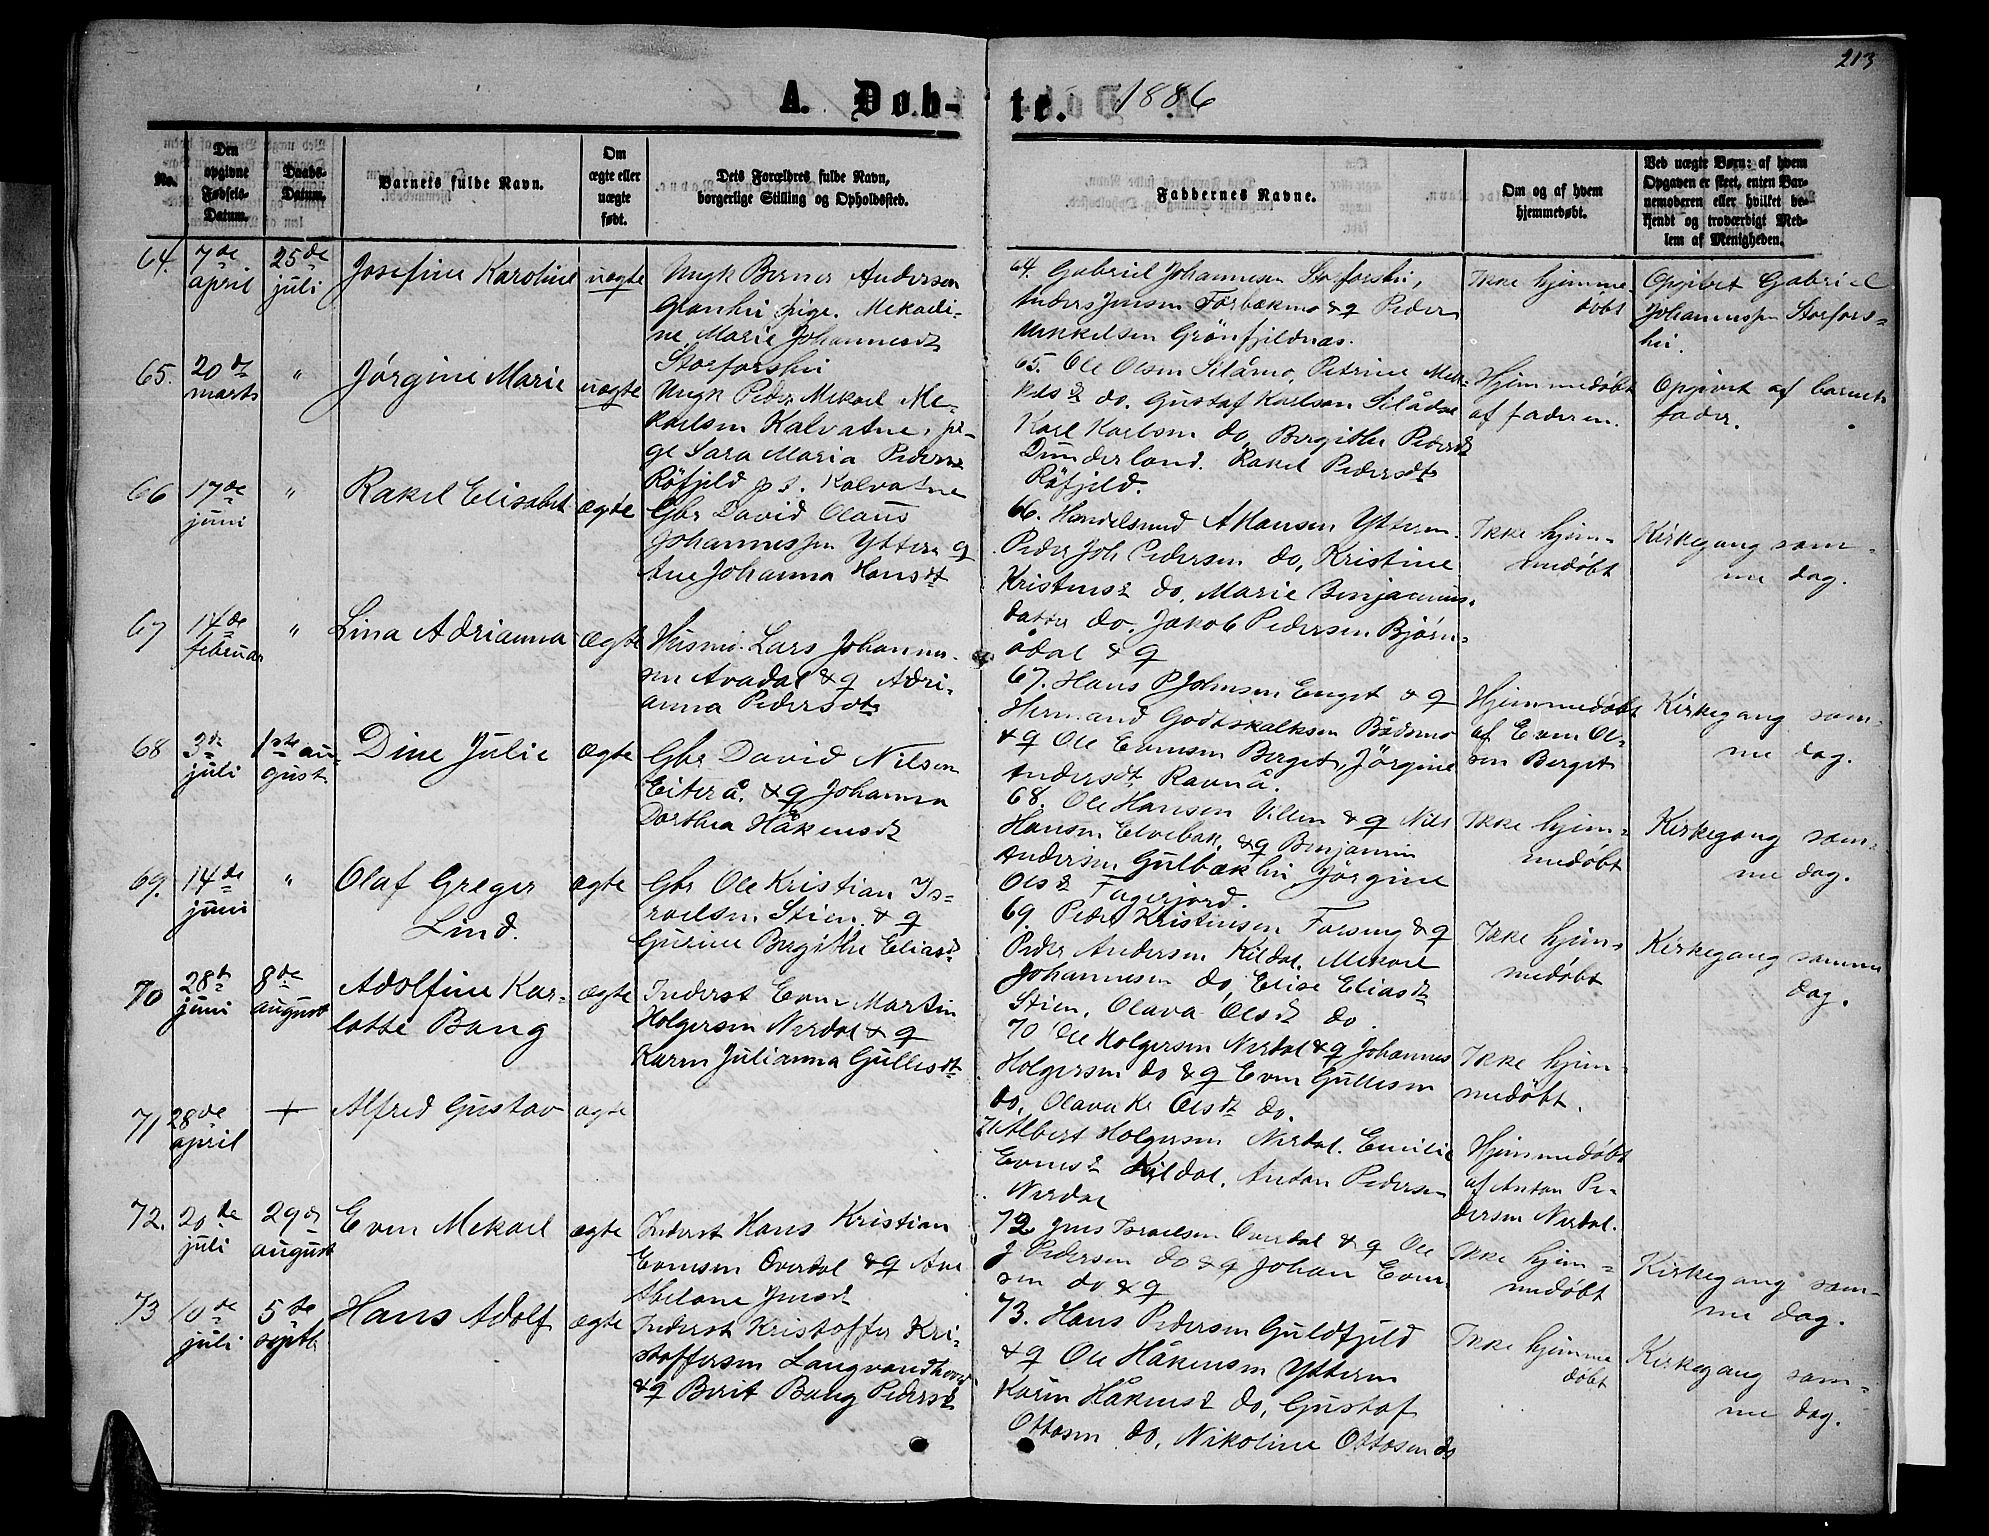 213
A. Døb-
te. 1886
No.
Den
opgivne
Fødsels-
Datum.
Daabs-
Datum.
Barnets fulde Navn.
Om
ægte eller
uægte
født.
Dets Forældres fulde Navn,
borgerlige Stilling og Opholdssted.
Faddernes Navne.
Om og af hvem
hjemmedøbt.
Ved uægte Børn: af hvem
Opgaven er skeet, enten Bar-
nemoderen eller hvilket be-
kjendt og troværdigt Med-
lem af Menigheden.
64.
7de
april
25de
juli
Josefine Karoline
uægte
Ungk Berner Andersen
Granhei pige. Mekadi-
ne Marie Johannesdt
Storforshei
64. Gabriel Johannesen Storforshei,
Anders Jensen Förbækmo & q Peder
Mikkelsen Grönfjeldnæs.
Ikke hjemme
døbt
Opgivet Gabriel
Johannessen Storfors-
hei.
65.
20de
marts
"
Jörgine Marie
uægte
Ungk Peder Mekael Me-
kaelsen Kalvatne, pi-
ge Sara Maria Peders
Röfjeld p. t. Kalvatne
65. Ole Olsen Silåmo, Petrine Mek-
kelsd do. Gustaf Karlsen Silådal
Karl Karlsen do, Bergithe Pedersd
Dunderland. Rakel Pedersdtr
Röfjeld.
Hjemmedöbt
af faderen.
Opgivet af barnets
fader.
66
17de
juni
"
Rakel Elisabet
ægte
Gbr David Olaus
Johannessen Ytteren q
Ane Johanna Hansdt
66. Handelsmd A Hansen Ytteren.
Peder Joh Pedersen do, Kristine
Kristensd do, Marie Benjamins-
datter do, Jakob Pedersen Bjørn-
ådal & q
Ikke hjem-
medøbt
Kirkegang sam-
me dag.
67
14de
februar
"
Lina Adrianna
ægte
Husmd. Lars Johanne-
sen Avadal & q Adri-
anna Pedersdtr
67. Hans P Johnsen Enget & q
Hermand Godtskalksen Bådsmo
& q Ole Evensen Berget, Jörgine
Andersdt, Ravnå.
Hjemmedöbt
af Even Ol-
sen Berget
Kirkegang sam-
me dag.
68
3de
juli
1ste au-
gust
Dine Julie
ægte
Gbr David Nilsen
Eiterå, & q Johanna
Dorthea Håkensdt
68. Ole Hansen Villen & q Nils
Hansen Elvebak, & q Benjamin
Andersen Gulbækhei, Jörgine
Olsd Fagerjord.
Ikke hjem-
medøbt
Kirkegang sam-
me dag.
69.
14de
juni
"
Olaf Greger
Lind.
ægte
Gbr Ole Kristian Is-
raelsen Stien & q
Gurine Bergithe Eliasdt
69. Peder Kristensen Forsmg & q
Peder Andersen Kildal, Mekael
Johannesen do, Elise Eliasdt
Stien, Olava Olsdt do.
Ikke hjem-
medøbt
Kirkegang samme
dag.
70
28de
juni
8de
august
Adolfine Kar-
lotte Bang
ægte
Inderst Even Martin
Holgersen Nerdal & q
Karen Julianna Gullesdt
70 Ole Holgersen Nerdal & q Johannes
Holgersen do & q Even Gullesen
do, Olava Kr Olsdt do.
Ikke hjem-
medøbt.
71
28de
april
+
Alfred Gustav
ægte
71 Albert Holgersen Nerdal. Emilie
Evensd Kildal, Anton Pedersen
Nerdal
Hjemmedöbt
af Anton Pe-
dersen Nerdal.
72.
20de
juli
29de
august
Even Mekael
ægte
Inderst Hans Kristian
Evensen Överdal & q Ane
Abelone Jensdt
72 Jens Israelsen Överdal & q Ole
J Pedersen do & q Johan Even-
sen do & q
Ikke hjem-
medøbt
Kirkegang sam-
me dag.
73
10de
juli
5te
septbr
Hans Adolf
ægte
Inderst Kristoffer Kri-
stoffersen Langvandhoved
& q Berit Bang Pedersdt
73. Hans Pedersen Guldfjeld
& q Ole Håkensen Ytteren
Karen Håkensd do, Gustaf
Ottosen do, Nikoline Ottosen do
Ikke hjemme
døbt
Kirkegang sam-
me dag.